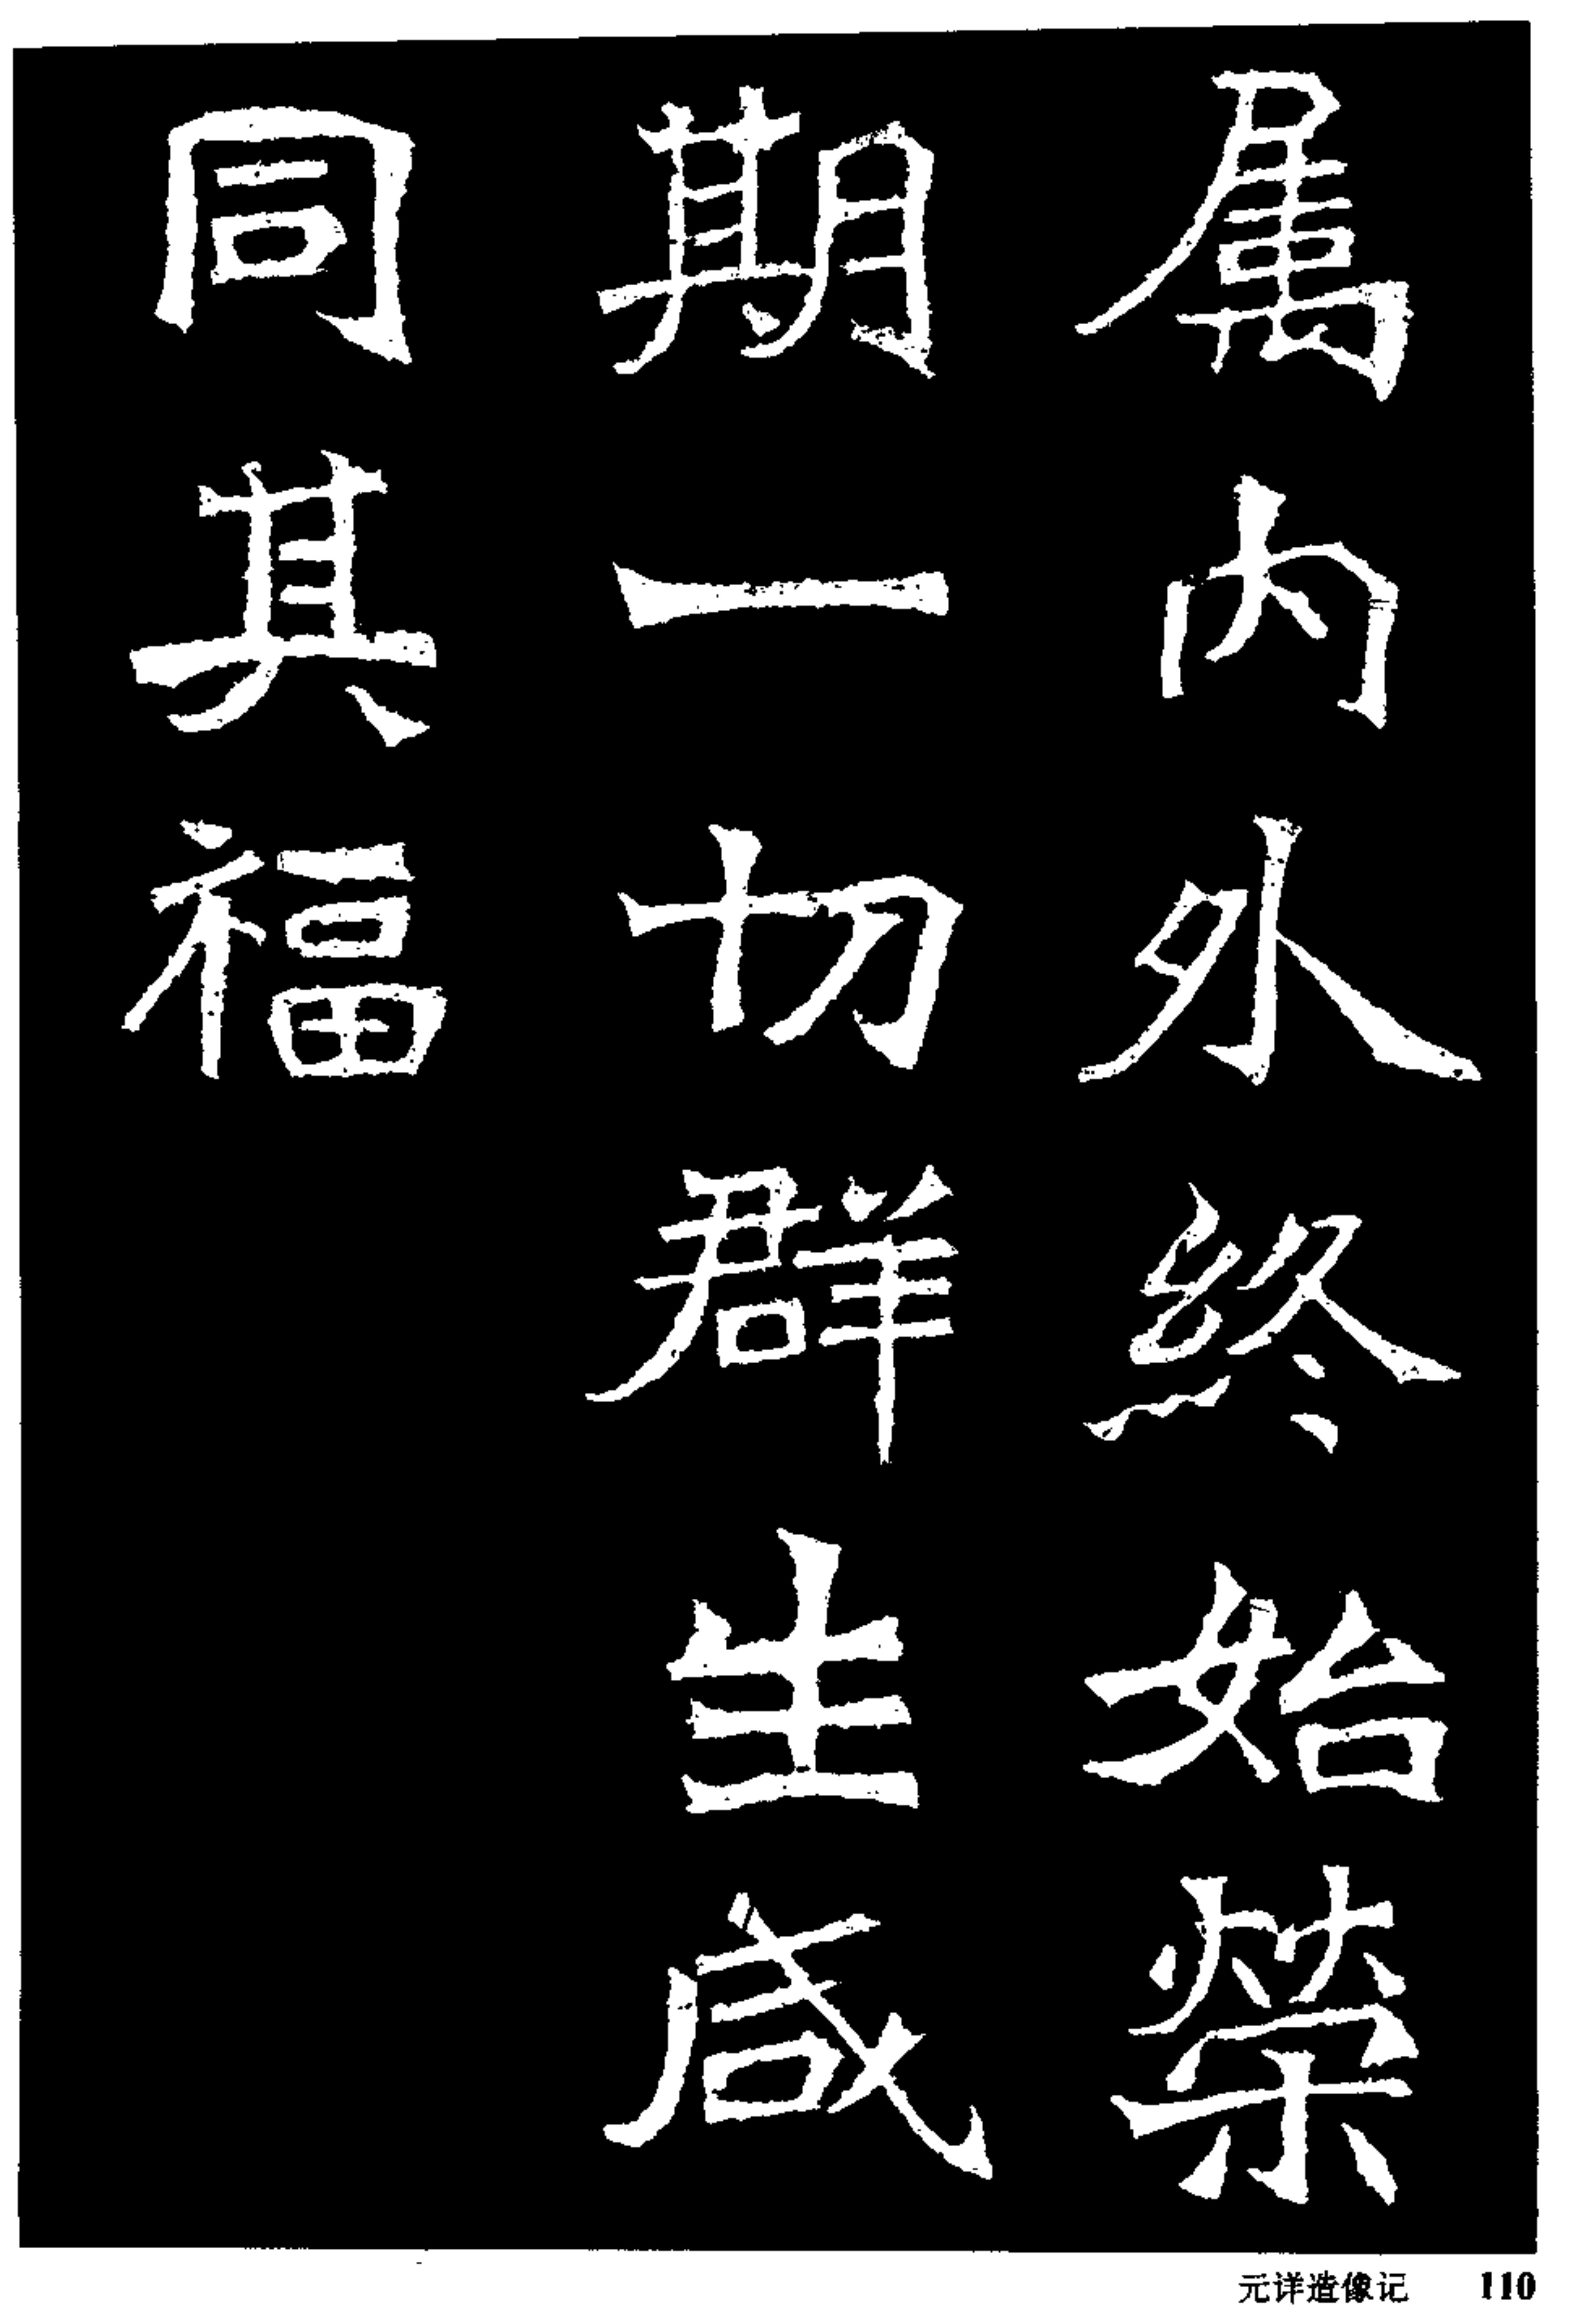 属内外终始荣
期一切群生咸
同其福
元详造像记 110